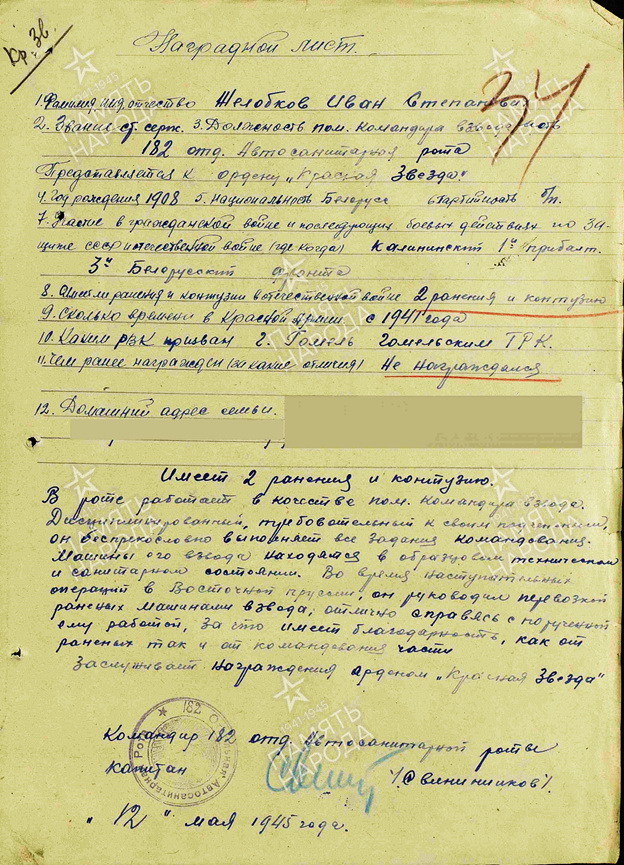 Кр. Зв.
Наградной лист.
34
1. Фамилия, имя, отчество Желобков Иван Степанович
2. Звание ст. серж. 3. Должность пом. командира взвода, часть
182 отд. Автосанитарная рота
Представляется к ордену „Красная Звезда"
4. Год рождения 1908 5. национальность Белорус 6. партийность б/п.
7. Участие в гражданской войне и последующих боевых действиях по за-
щите СССР и отечественной войне (где когда) Калининский 1й прибалт.
3й Белорусский фронта
8. Имеет ли ранения и контузии в отечественной войне 2 ранения и контузию
9. Сколько времени в Красной Армии с 1941 года
10. Каким РВК призван г. Гомель Гомельским ГРК.
11. Чем ранее награжден (за какие отличия) Не награждался
12. Домашний адрес семьи.
Имеет 2 ранения и контузию.
В роте работает в качестве пом. командира взвода.
Дисциплинированный, требовательный к своим подчиненным,
он беспрекословно выполняет все задания командования.
Машины его взвода находятся в образцовом техническом
и санитарном состоянии. Во время наступательных
операций в Восточной Пруссии, он руководил перевозкой
раненых машинами взвода, отлично справясь с порученной
ему работой, за что имеет благодарность, как от
раненых так и от командования части
Заслуживает награждения орденом „Красная Звезда"
Командир 182 отд. Автосанитарной роты
капитан /Свининников/.
„12" мая 1945 года.
182 Отдельная Автосанитарная Рота
1941-1945
ПАМЯТЬ
НАРОДА